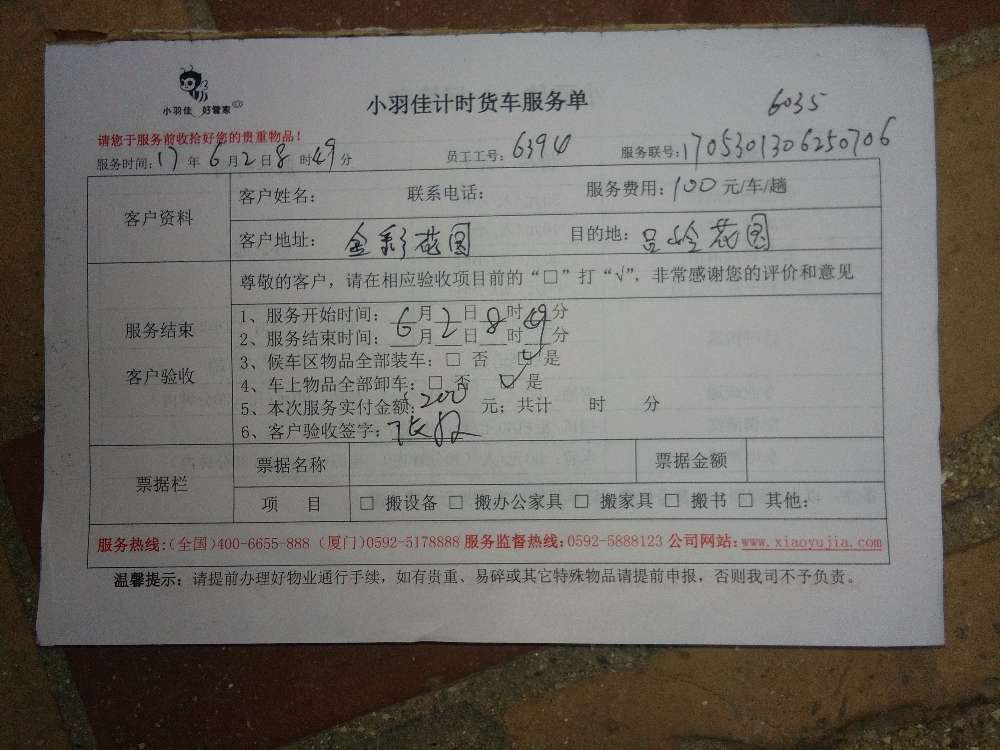 小羽佳 好管家
小羽佳计时货车服务单
6035
请您于服务前收拾好您的贵重物品！
服务时间：17年6月2日8时49分 员工工号：6394 服务联号：1705301306250706
客户资料
客户姓名： 联系电话： 服务费用：100元/车/趟
客户地址：金彩花园 目的地：吕岭花园
服务结束
客户验收
尊敬的客户，请在相应验收项目前的“□”打“√”，非常感谢您的评价和意见
1、服务开始时间：6月2日8时49分
2、服务结束时间：__月__日__时__分
3、候车区物品全部装车：□ 否 ☑ 是
4、车上物品全部卸车：□ 否 ☑ 是
5、本次服务实付金额：200元；共计 时 分
6、客户验收签字：张
票据栏
票据名称 票据金额
项 目 □ 搬设备 □ 搬办公家具 □ 搬家具 □ 搬书 □ 其他：
服务热线：(全国)400-6655-888 (厦门)0592-5178888 服务监督热线：0592-5888123 公司网站：www.xiaoyujia.com
温馨提示：请提前办理好物业通行手续，如有贵重、易碎或其它特殊物品请提前申报，否则我司不予负责。